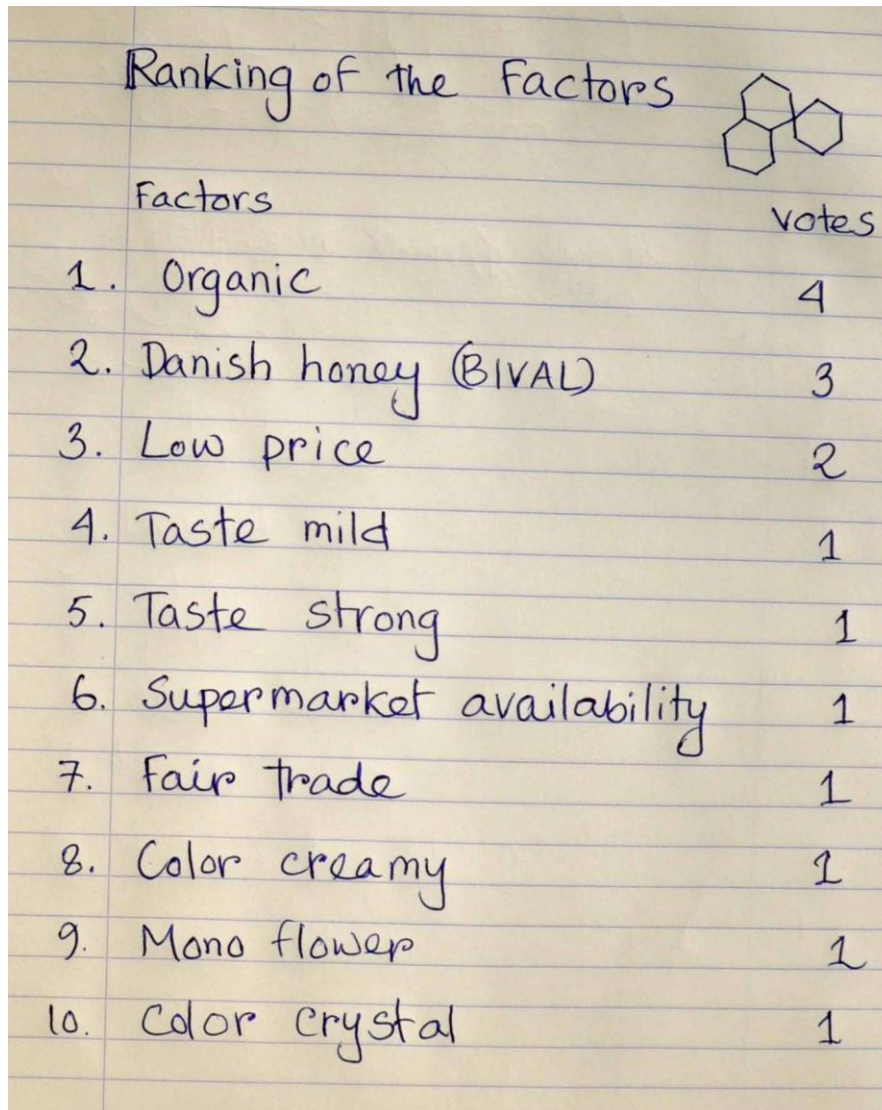 Ranking of the Factors
Factors votes
1. Organic 4
2. Danish honey (BIVAL) 3
3. Low price 2
4. Taste mild 1
5. Taste strong 1
6. Supermarket availability 1
7. Fair trade 1
8. Color creamy 1
9. Mono flower 1
10. Color crystal 1